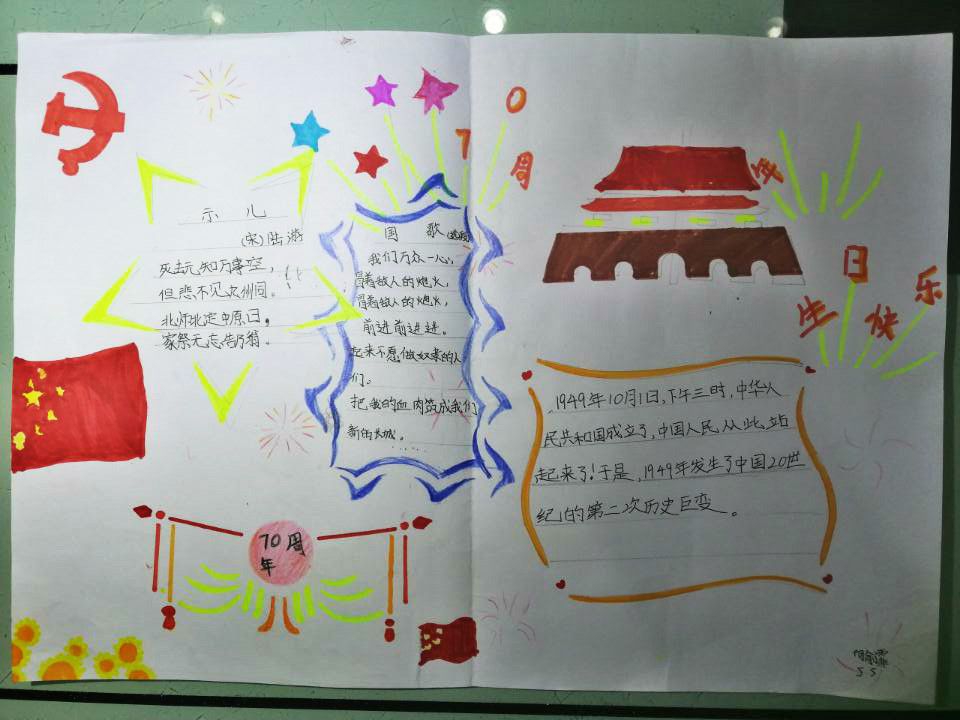 70周年
生日快乐
示儿
(宋)陆游
死去元知万事空,
但悲不见九州同。
北师北定中原日,
家祭无忘告乃翁。
国歌(选段)
我们万众一心,
冒着敌人的炮火,
冒着敌人的炮火,
前进前进进。
起来不愿做奴隶的人
们。
把我的血肉筑成我们
新的长城。
......
70周
年
1949年10月1日,下午三时,中华人
民共和国成立了,中国人民从此站
起来了!于是,1949年发生了中国20世
纪的第二次历史巨变。